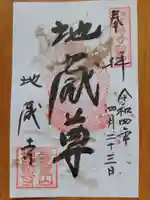 奉拝
令和四年四月二十三日
地蔵尊
地蔵寺